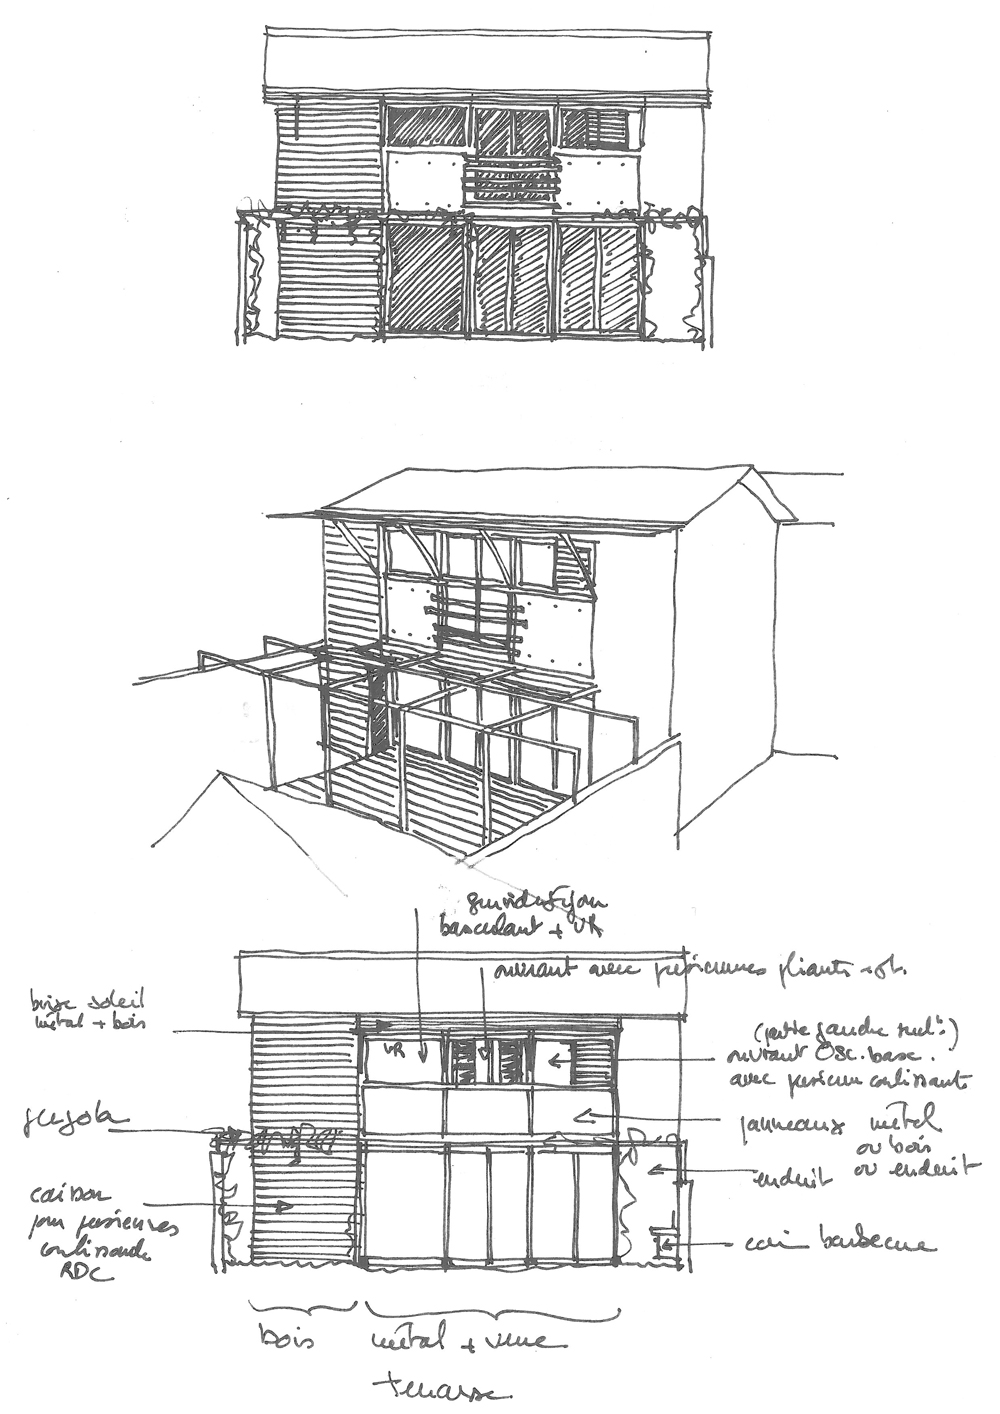 basculant + VR
ouvrant avec persiennes pliants
brise soleil
métal + bois
VR
(partie gauche
ouvrant Osc. batt.
avec persienne coulissants
pergola
panneaux métal
ou bois
ou enduit
enduit
caisson
pour persiennes
coulissante
RDC
coin barbecue
bois métal + verre
terrasse